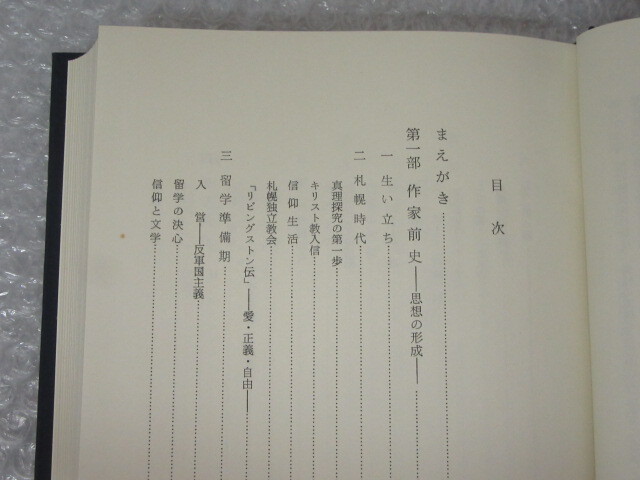 目次
まえがき
第一部 作家前史――思想の形成――
一 生い立ち
二 札幌時代
真理探究の第一歩
キリスト教入信
信仰生活
札幌独立教会
『リビングストン伝』――愛・正義・自由――
三 留学準備期
入営――反軍国主義
留学の決心
信仰と文学